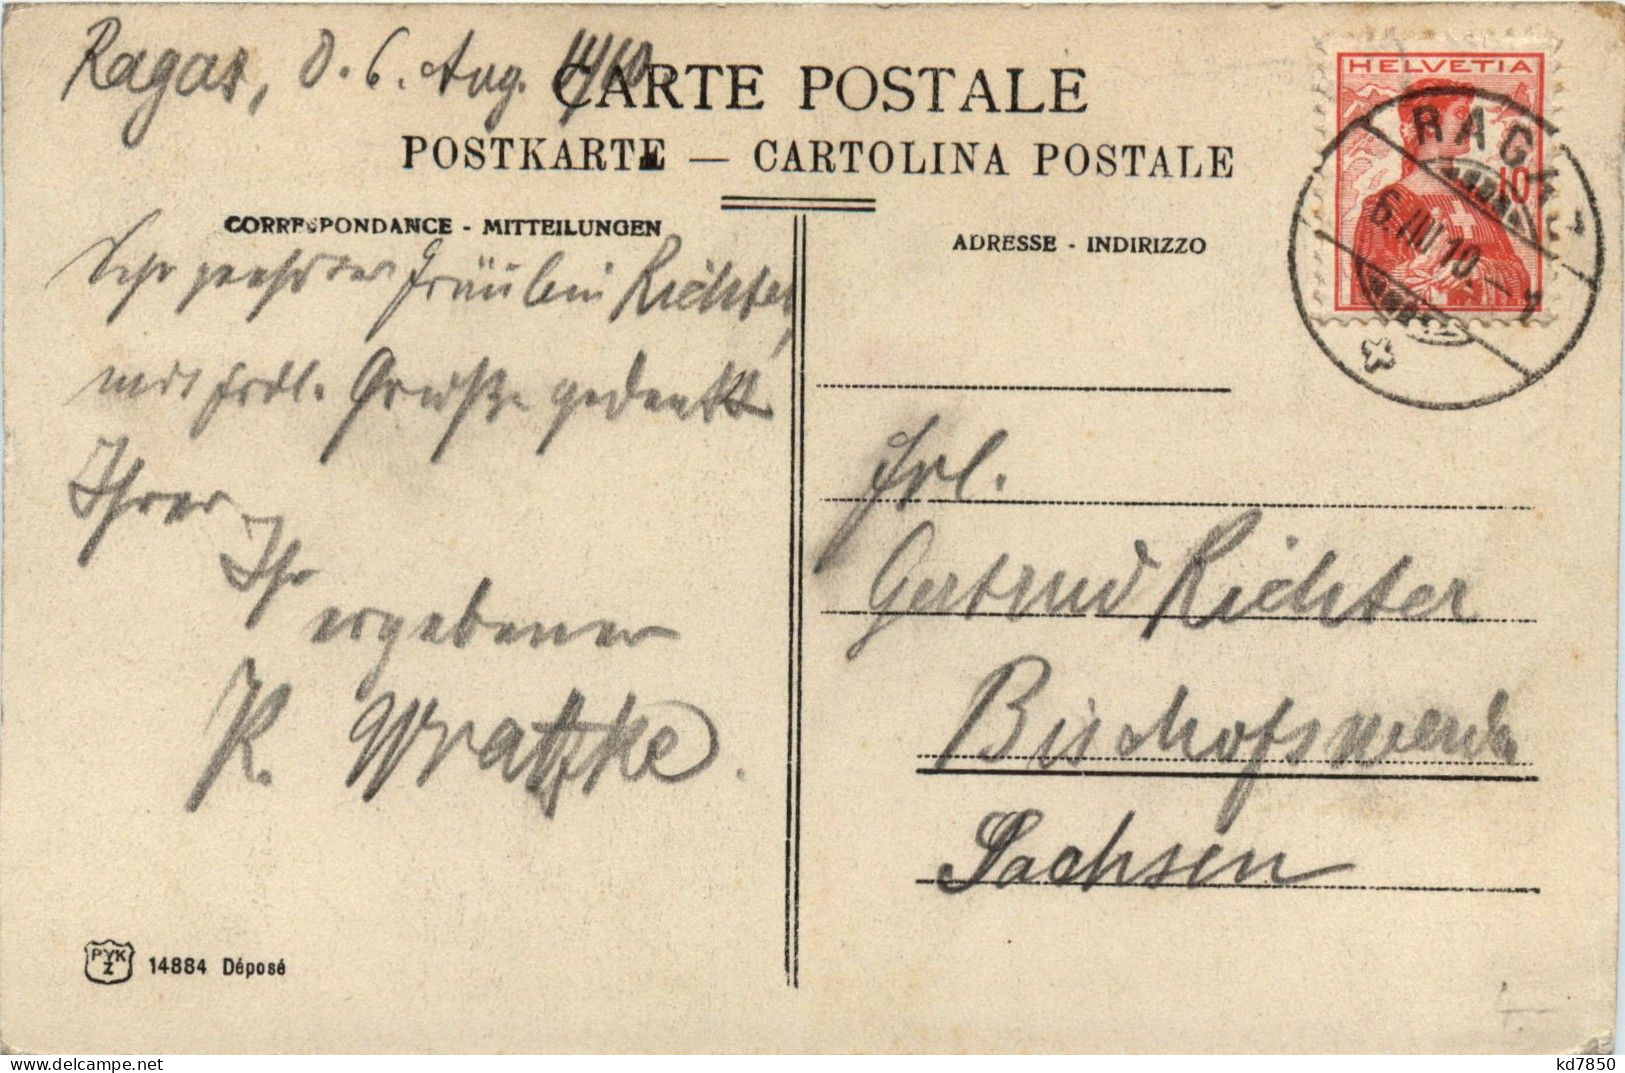 Ragaz, d. 6. Aug. 1910.
CARTE POSTALE
POSTKARTE — CARTOLINA POSTALE
CORRESPONDANCE - MITTEILUNGEN
ADRESSE - INDIRIZZO
HELVETIA
10
RAGAZ
6.VIII.10.
Sehr geehrtes Fräulein Richter,
mit frdl. Grüße gedenkt
Ihrer
Ihr
ergebener
R. Wratzke.
Frl.
Gertrud Richter
Bischofswerda
Sachsen
PVK
Z
14884 Déposé
delcampe.net
kd7850